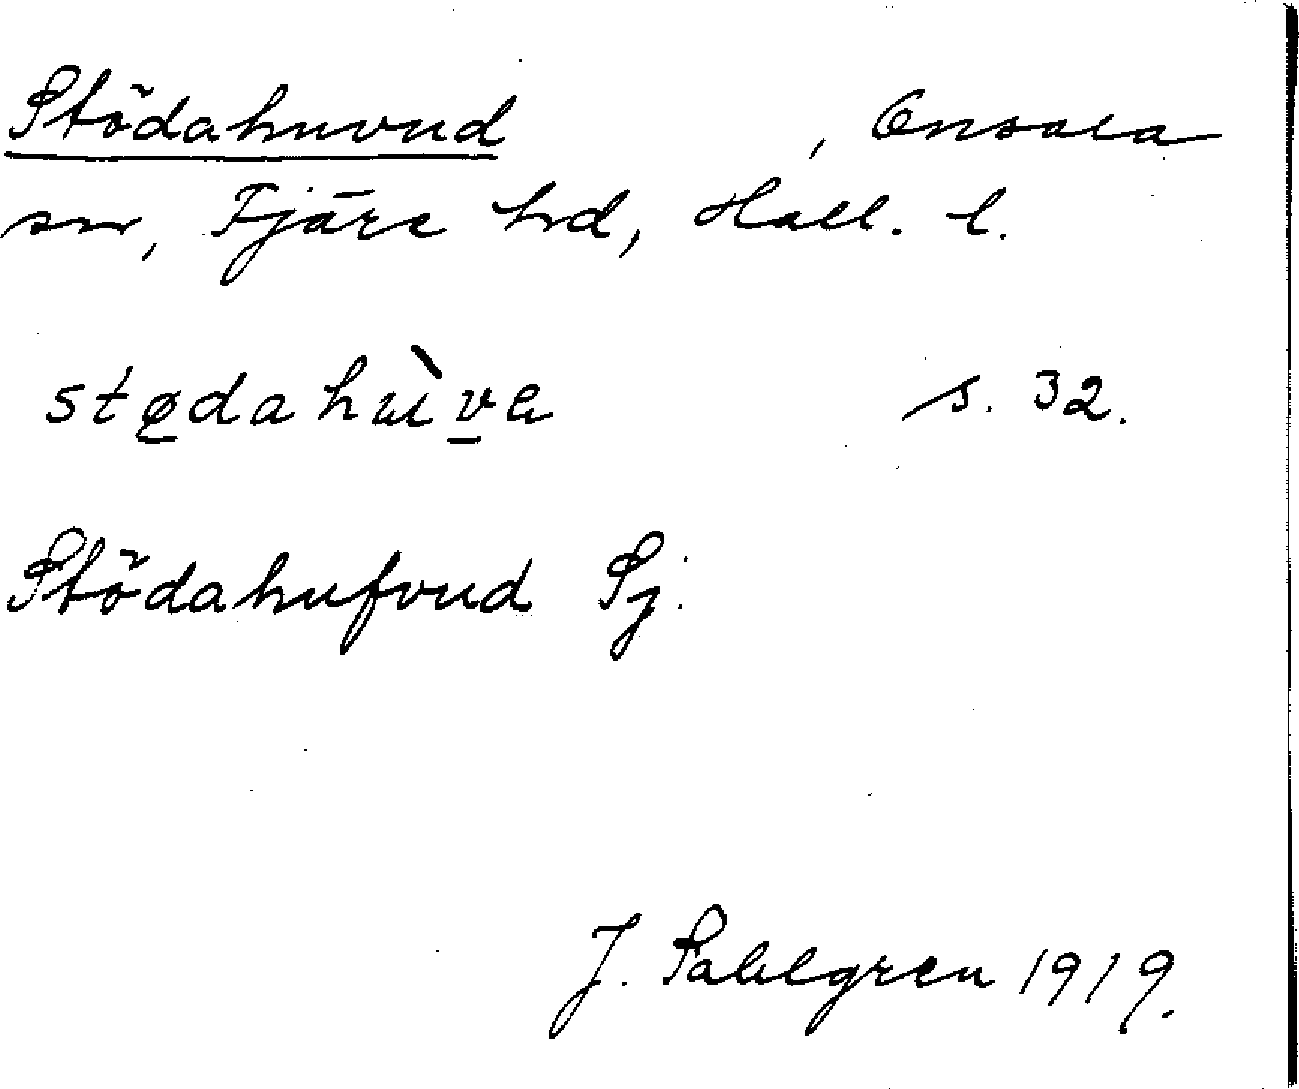 Stödahuvud , Onsala
sn, Fjäre hd, Hall. l.
stødahùva s. 32.
Stödahufvud Sj.
J. Sahlgren 1919.